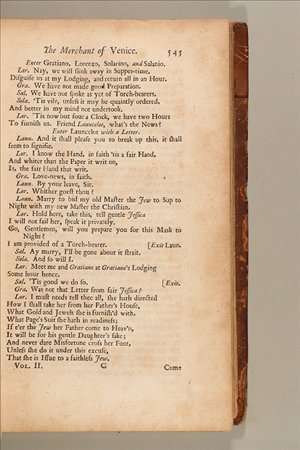 The Merchant of Venice. 545
Enter Gratiano, Lorenzo, Solarino, and Salanio.
Lor. Nay, we will slink away in Supper-time,
Disguise us at my Lodging, and return all in an Hour.
Gra. We have not made good Preparation.
Sal. We have not spoke as yet of Torch-bearers.
Sola. 'Tis vile, unless it may be quaintly ordered,
And better in my mind not undertook.
Lor. 'Tis now but four a Clock, we have two Hours
To furnish us. Friend Launcelot, what's the News?
Enter Launcelot with a Letter.
Laun. And it shall please you to break up this, it shall
seem to signifie.
Lor. I know the Hand, in faith 'tis a fair Hand,
And whiter than the Paper it writ on,
Is, the fair Hand that writ.
Gra. Love-news, in faith.
Laun. By your leave, Sir.
Lor. Whither goest thou?
Laun. Marry to bid my old Master the Jew to Sup to
Night with my new Master the Christian.
Lor. Hold here, take this, tell gentle Jessica
I will not fail her, speak it privately.
Go, Gentlemen, will you prepare you for this Mask to
Night?
I am provided of a Torch-bearer. [Exit Laun.
Sal. Ay marry, I'll be gone about it strait.
Sola. And so will I.
Lor. Meet me and Gratiano at Gratiano's Lodging
Some hour hence.
Sal. 'Tis good we do so. [Exit.
Gra. Was not that Letter from fair Jessica?
Lor. I must needs tell thee all, she hath directed
How I shall take her from her Father's House,
What Gold and Jewels she is furnish'd with.
What Page's Suit she hath in readiness;
If e'er the Jew her Father come to Heav'n,
It will be for his gentle Daughter's sake;
And never dare Misfortune cross her Foot,
Unless she do it under this excuse,
That she is Issue to a faithless Jew.
VOL. II. G Come